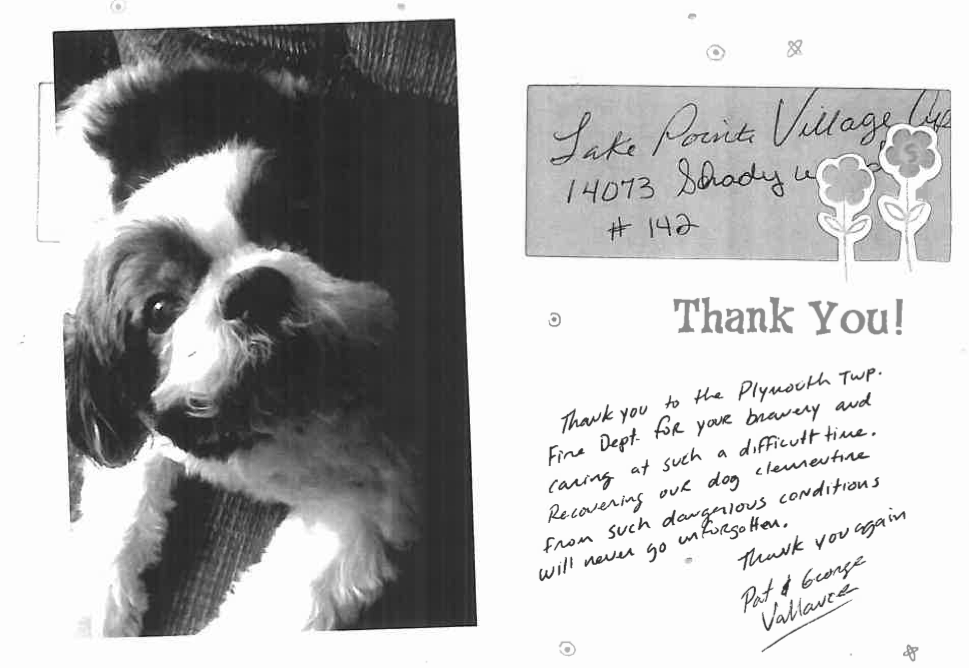 Lake Pointe Village
14073 Shady
# 142
Thank You!
Thank you to the Plymouth Twp.
Fire Dept. for your bravery and
caring at such a difficult time.
Recovering our dog clementine
from such dangerious conditions
will never go unforgotten.
Thank you again
Pat & George
Vallance